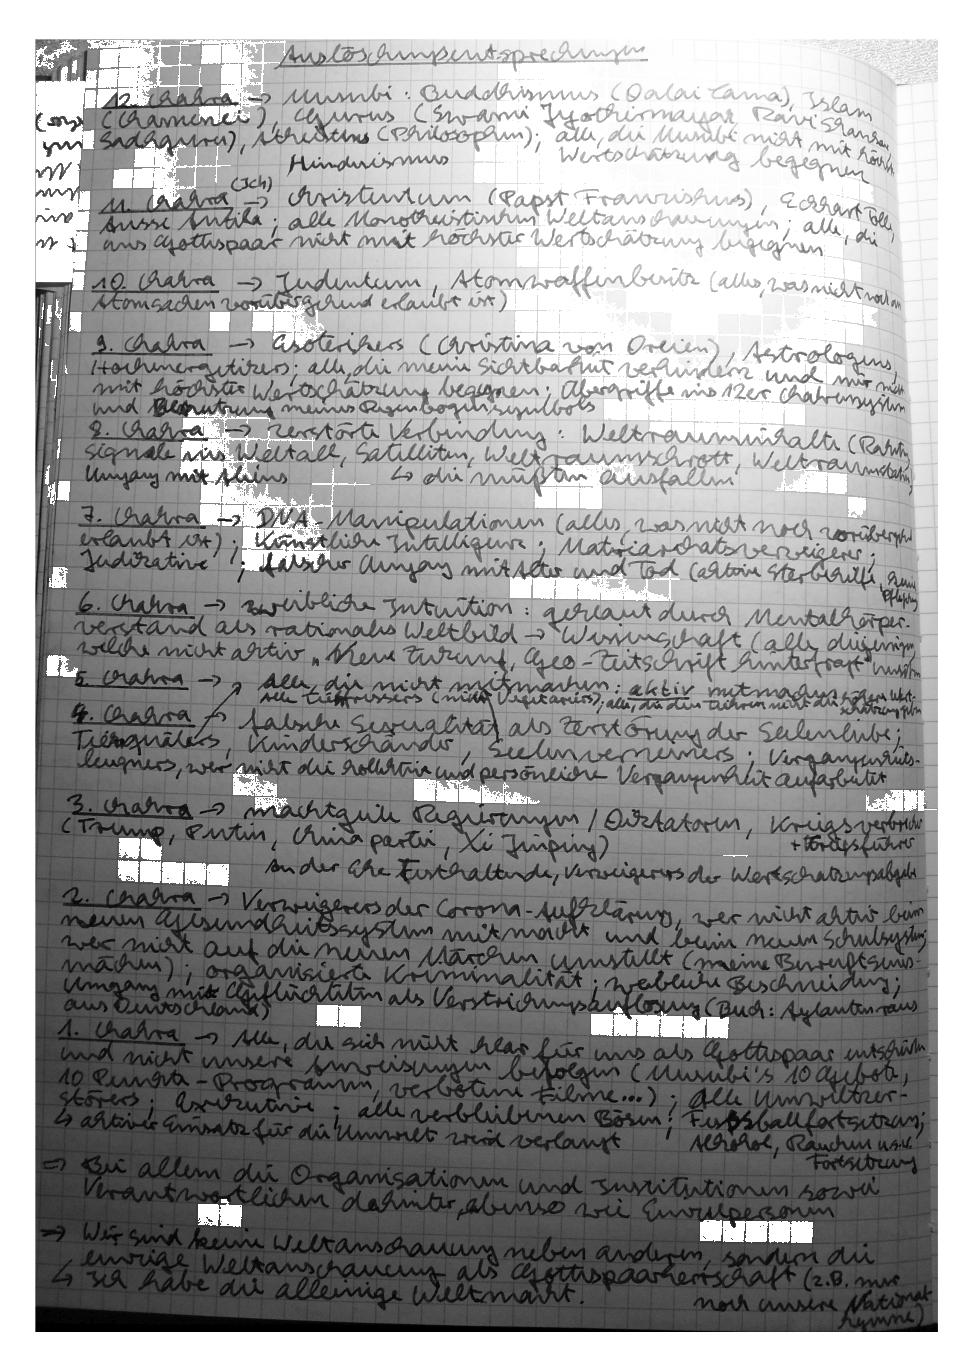 Auslöschungsentsprechungen
12. Chakra -> Musubi: Buddhismus (Dalai Lama), Islam
(Chamenei), Gurus (Swami Jyothirmayah, Ravi Shankar
Sadhguru), Atheisten (Philosophen); alle, die Musubi nicht mit höchster
Hinduismus Wertschätzung begegnen
(Ich)
11. Chakra -> Christentum (Papst Franziskus), Eckhart Tolle,
alle Monotheistischen Weltanschauungen; alle, die
uns Gottespaar nicht mit höchster Wertschätzung begegnen
10. Chakra -> Judentum, Atomwaffenbesitz (alles, was nicht von
Atomsachen vorübergehend erlaubt ist)
9. Chakra -> Esoterikers (Christina von Dreien), Astrologens,
Hochenergetikers; alle, die meine Sichtbarkeit verhindern und mir nicht
mit höchster Wertschätzung begegnen; Übergriffe ins 12er Chakrensystem
und Benutzung meines Regenbogensymbols
8. Chakra -> zerstörte Verbindung: Weltrauminhalte (Raketen,
Signale ins Weltall, Satelliten, Weltraumschrott, Weltraumstation)
Umgang mit Aliens ↳ die müßten ausfallen
7. Chakra -> DNA-Manipulationen (alles, was nicht noch vorübergehend
erlaubt ist); Künstliche Intelligenz; Matriarchatsverweigerer;
Judikative; falscher Umgang mit Alter und Tod (aktive Sterbehilfe,
6. Chakra -> weibliche Intuition: geklaut durch Mentalkörper-
verstand als rationales Weltbild -> Wissenschaft (alle diejenigen,
welche nicht aktiv "Neue Zukunft, Geo-Zeitschrift hinterfragt"
5. Chakra -> Alle, die nicht mitmachen: aktiv mitmachen
alle Tierfressers (nicht Vegetariers), alle, die den Tieren nicht die
4. Chakra -> falsche Sexualität als Zerstörung der Seelenliebe;
Tierquälers, Kinderschänder, Seelenverneiners; Vergangenheits-
leugners, wer nicht die kollektive und persönliche Vergangenheit aufarbeitet
3. Chakra -> machtgeile Regierungen / Diktatoren, Kriegsverbrecher
(Trump, Putin, China partei, Xi Jinping) + Kriegsführer
An der Ehe Festhaltende, Verweigerers der Wertschätzungsabgabe
2. Chakra -> Verweigerers der Corona-Aufklärung, wer nicht aktiv beim
neuen Gesundheitssystem mitmacht und beim neuen Schulsystem
wer nicht auf die neuen Märchen umstellt (meine Bewußtseins-
märchen); organisierte Kriminalität; weibliche Beschneidung;
Umgang mit Geflüchteten als Verstrickungsauflösung (Buch: Asylanten raus
aus Deutschland)
1. Chakra -> Alle, die sich nicht klar für uns als Gottespaar entscheiden
und nicht unsere Anweisungen befolgen (Musubi's 10 Gebote,
10 Punkte-Programm, verbotene Filme...); Alle Umweltzer-
störers; Exekutive; alle verbleibenen Bösen; Fussballfortsetzung;
↳ aktiver Einsatz für die Umwelt wird verlangt Alkohol, Rauchen usw.
Fortsetzung
=> Bei allem die Organisationen und Institutionen sowie
Verantwortlichen dahinter, ebenso wie Einzelpersonen
-> Wir sind keine Weltanschauung neben anderen, sondern die
einzige Weltanschauung als Gottespaarherrschaft (z.B. nur
↳ Ich habe die alleinige Weltmacht. noch unsere National
hymne)